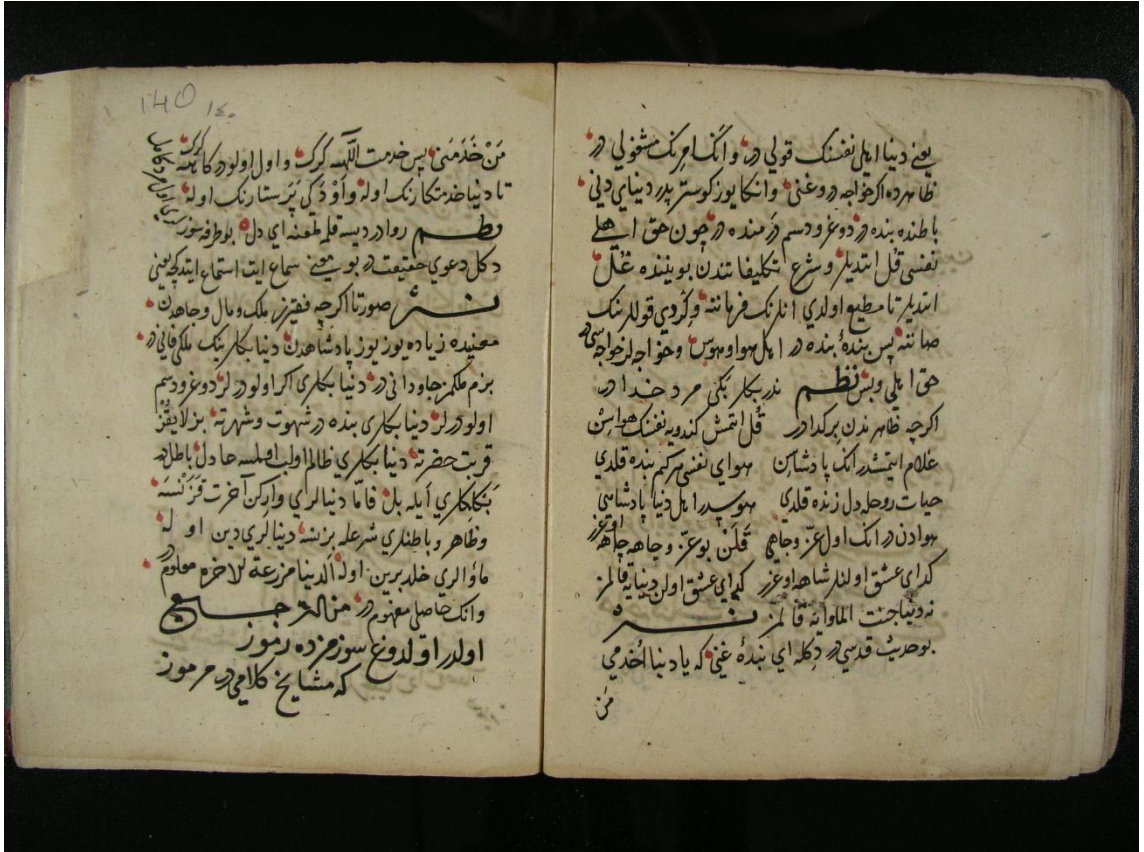 يعني دنيا اهلي نفسنك قولي در وانك امرنك مشغولي در
ظاهرده اكر خواجه در وغني وانكا يوز كوستر پدر دنياي دني
باطنده بنده در دوغرو دسم در منده در چون حق اهلي
نفسي قل ابتديلر وشرع تكليفاتندن بوينده غل
ابتديلر تا مطيع اولدي انلرنك فرماننه وكردي قوللرنك
صاننه پس بندۀ بنده در اهل هوا وهوس وخواجه لر خواجه سي در
حق اهلي وبس نظم ندر بكلر بكي مرد خدا در
اكرچه ظاهرندن بر كدا در قل اتمش كندويه نفسنك هواسن
غلام ايتمشدر انك پادشاسن هواي نفسي هر كم بنده قلدي
حيات روحله دل زنده قلدي هوسدر اهل دنيا پادشاهي
هوادن در انك اول عز وجاهي قلن بو عز وجاهه چاهه اوغرر
كداي عشق اولنلر شاهه اوغرر كداي عشق اولن دنيايه قالمز
نه دنيا جنت الماوايه قالمز نثر
بو حديث قدسي در دكله اي بندۀ غني كه يا دنيا اخدمي
من
١٤٠ 140
مَنْ خَدَمَني پس خدمت اللّهه كرك واول اولور كامله كرك
تا دنيا خدمتكارنك اوله واودكي پرستارنك اوله
نظم روادر ديسه قلم لمعنه اي دل بو طرفه سوز
دكل دعوي حقيقت در بو معني سماع ايت استماع ايتدكچه يعني
نثر صورتا اكرچه فقيرز ملك ومال وجاهدن
معنيده زياده يوز يوز پادشاهدن دنيا بكلرينك ملكي فاني در
بزم ملكمز جاوداني در دنيا بكلري اكر اولورلر دوغرو دسم
اولورلر دنيا بكلري بنده در شهوت وشهرته بز لايقز
قربت حضرته دنيا بكلري ظالم اولب اولمسه عادل باطلدر
بكلكلري ايله بل فامّا دنيالري واركن آخرت قزنسه
وظاهر وباطنلري شرعله بزنسه دنيالري دين اوله
مأوالري خلد برين اوله الدنيا مزرعة للاخره معلوم در
وانك حاصلي مفهوم در
اولدر اولدوغ سوزمزده رموز
كه مشايخ كلامي در مرموز